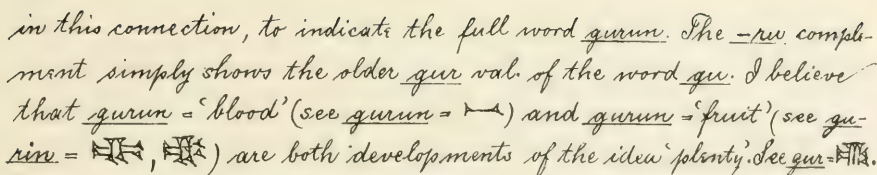 in this connection, to indicate the full word gurun. The -ru comple-
ment simply shows the older gur val. of the word gu. I believe
that gurun = 'blood' (see gurun = 𒁁) and gurun = 'fruit' (see gu-
rin = , ) are both developments of the idea 'plenty'. See gur = .